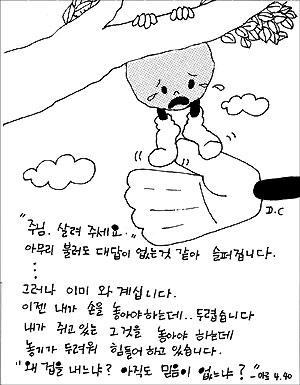 D.C
"주님. 살려 주세요."
아무리 불러도 대답이 없는것 같아 슬퍼집니다.
⋮
그러나 이미 와 계십니다.
이젠 내가 손을 놓아야 하는데.. 두렵습니다
내가 쥐고 있는 그것을 놓아야 하는데
놓기가 두려워 힘들어 하고 있습니다.
"왜 겁을 내느냐? 아직도 믿음이 없느냐?" -마르 4.40